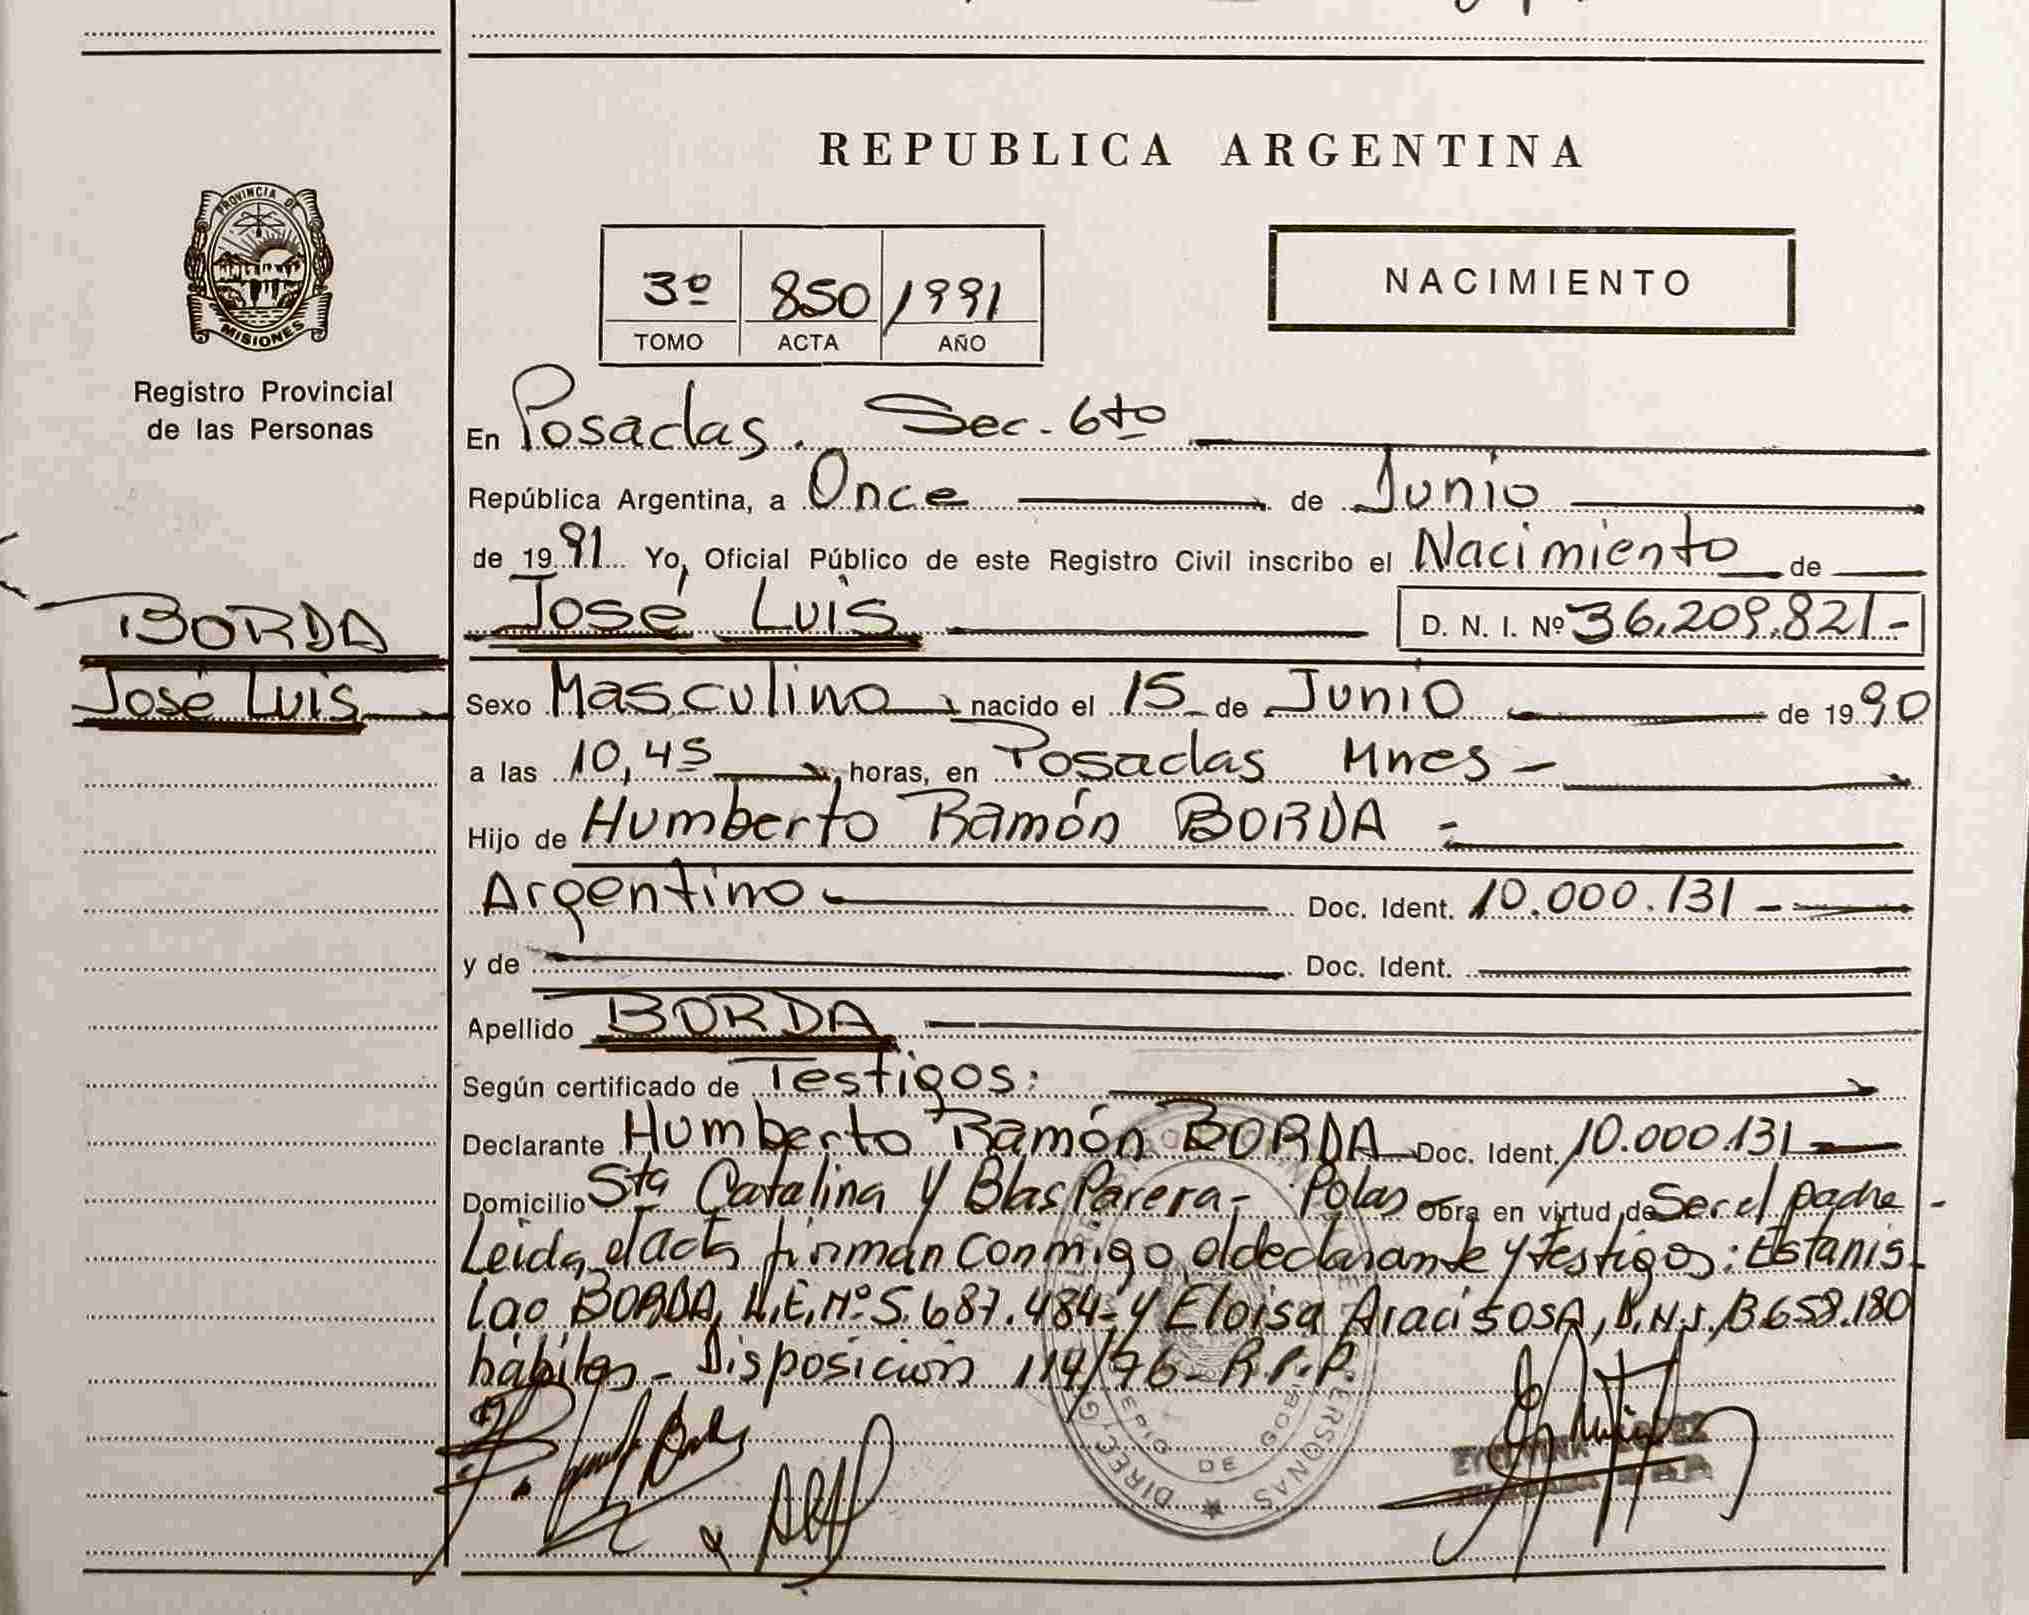 REPUBLICA ARGENTINA
PROVINCIA DE
MISIONES
Registro Provincial
de las Personas
3º 850 1991
TOMO ACTA AÑO
NACIMIENTO
En Posadas. Sec. 6to
República Argentina, a Once de Junio
de 1991 Yo, Oficial Público de este Registro Civil inscribo el Nacimiento de
José Luis D. N. I. Nº 36.209.821-
BORDA
José Luis
Sexo Masculino nacido el 15 de Junio de 1990
a las 10,45 horas, en Posadas Mnes -
Hijo de Humberto Ramón BORDA -
Argentino Doc. Ident. 10.000.131 -
y de Doc. Ident.
Apellido BORDA
Según certificado de Testigos:
Declarante Humberto Ramón BORDA Doc. Ident. 10.000.131
Domicilio Sta Catalina y Blas Parera - Pdas Obra en virtud de Ser el padre -
Leida el Acta firman conmigo el declarante y testigos: Estanis-
lao BORDA, L.E. Nº 5.687.484- y Eloisa Araci SOSA, D.N.I. 13.658.180
hábiles - Disposición 114/76 - R.P.P.
DE